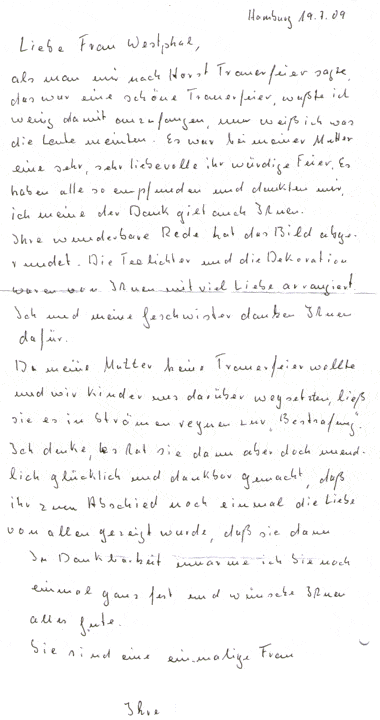 Hamburg 19.7.09
Liebe Frau Westphal,
als man mir nach Horst Trauerfeier sagte,
das war eine schöne Trauerfeier, wußte ich
wenig damit anzufangen, nun weiß ich was
die Leute meinten. Es war bei meiner Mutter
eine sehr, sehr liebevolle ihr würdige Feier. Es
haben alle so empfunden und dankten mir,
ich meine der Dank gilt auch Ihnen.
Ihre wunderbare Rede hat das Bild abge-
rundet. Die Teelichter und die Dekoration
waren von Ihnen mit viel Liebe arrangiert
Ich und meine Geschwister danken Ihnen
dafür.
Da meine Mutter keine Trauerfeier wollte
und wir Kinder uns darüber wegsetzten, ließ
sie es in Strömen regnen zur "Bestrafung"
Ich denke, es hat sie dann aber doch unend-
lich glücklich und dankbar gemacht, daß
ihr zum Abschied noch einmal die Liebe
von allen gezeigt wurde, daß sie dann
In Dankbarkeit umarme ich Sie noch
einmal ganz fest und wünsche Ihnen
alles Gute.
Sie sind eine einmalige Frau
Ihre